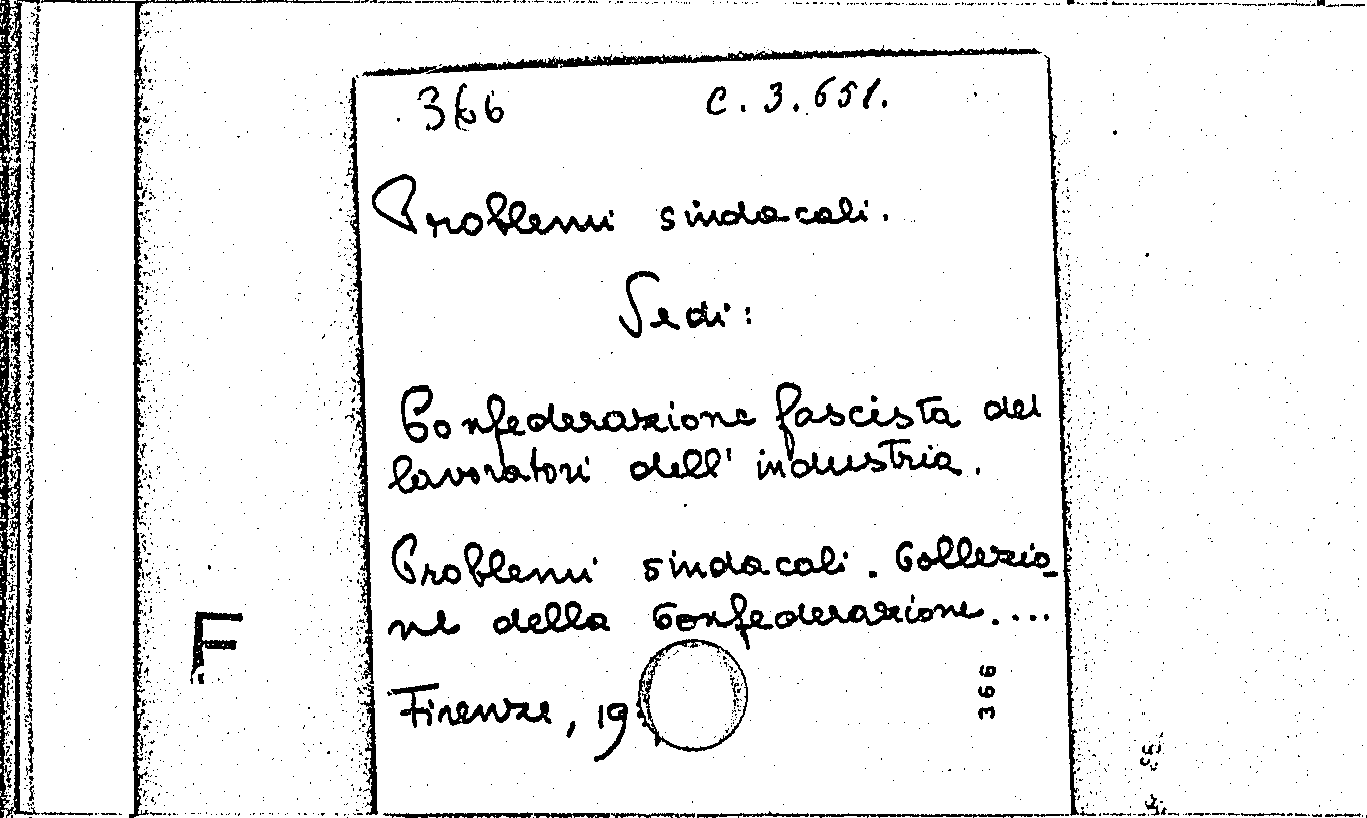 366 C.3.651.
Problemi sindacali.
Vedi:
Confederazione fascista dei
lavoratori dell'industria.
Problemi sindacali. Collezio_
ne della Confederazione....
F
Firenze, 19
366